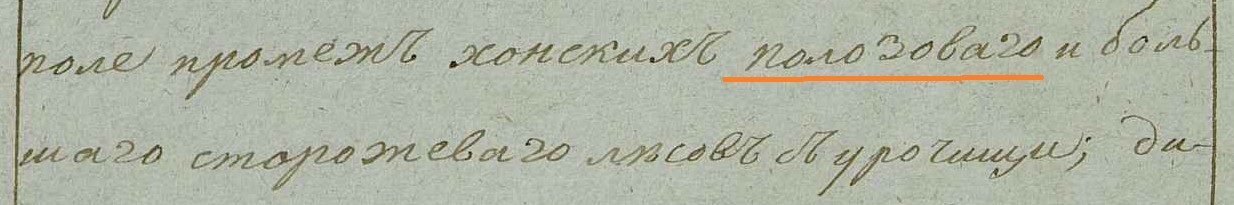 поле промежъ хонскихъ полозоваго и боль-
шаго сторожеваго лѣсовъ Ѣ урочищи; да-